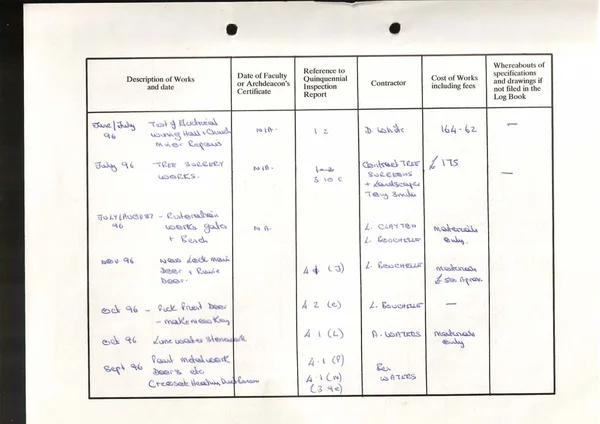 Description of Works
and date
Date of Faculty
or Archdeacon's
Certificate
Reference to
Quinquennial
Inspection
Report
Contractor
Cost of Works
including fees
Whereabouts of
specifications
and drawings if
not filed in the
Log Book
June/July 96
Test of Electrical
wiring Hall + Church
Minor Repairs
N/A.
1 2
D. White
164-62
—
July 96
TREE SURGERY
WORKS.
N/A.
3 10 c
Contract TREE
SURGEONS
+ Landscape
Tony
£ 175
—
JULY/AUGUST
96
works gate
+ Bench
N A.
L. CLAYTON
L. BOUCHELLE
Materials
only.
NOV 96
New Lock main
Door +
Door.
4 (J)
L. BOUCHELLE
Materials
£ 50 Aprox.
Oct 96 - Door
- make new Key
4 2 (c)
L. BOUCHELLE
—
Oct 96 Lime water Stonework
4 1 (L)
A. WATERS
Materials
only
Sept 96
Paint Metalwork
Doors etc
4.1 (P)
4 1 (N)
(3 9c)
WATERS